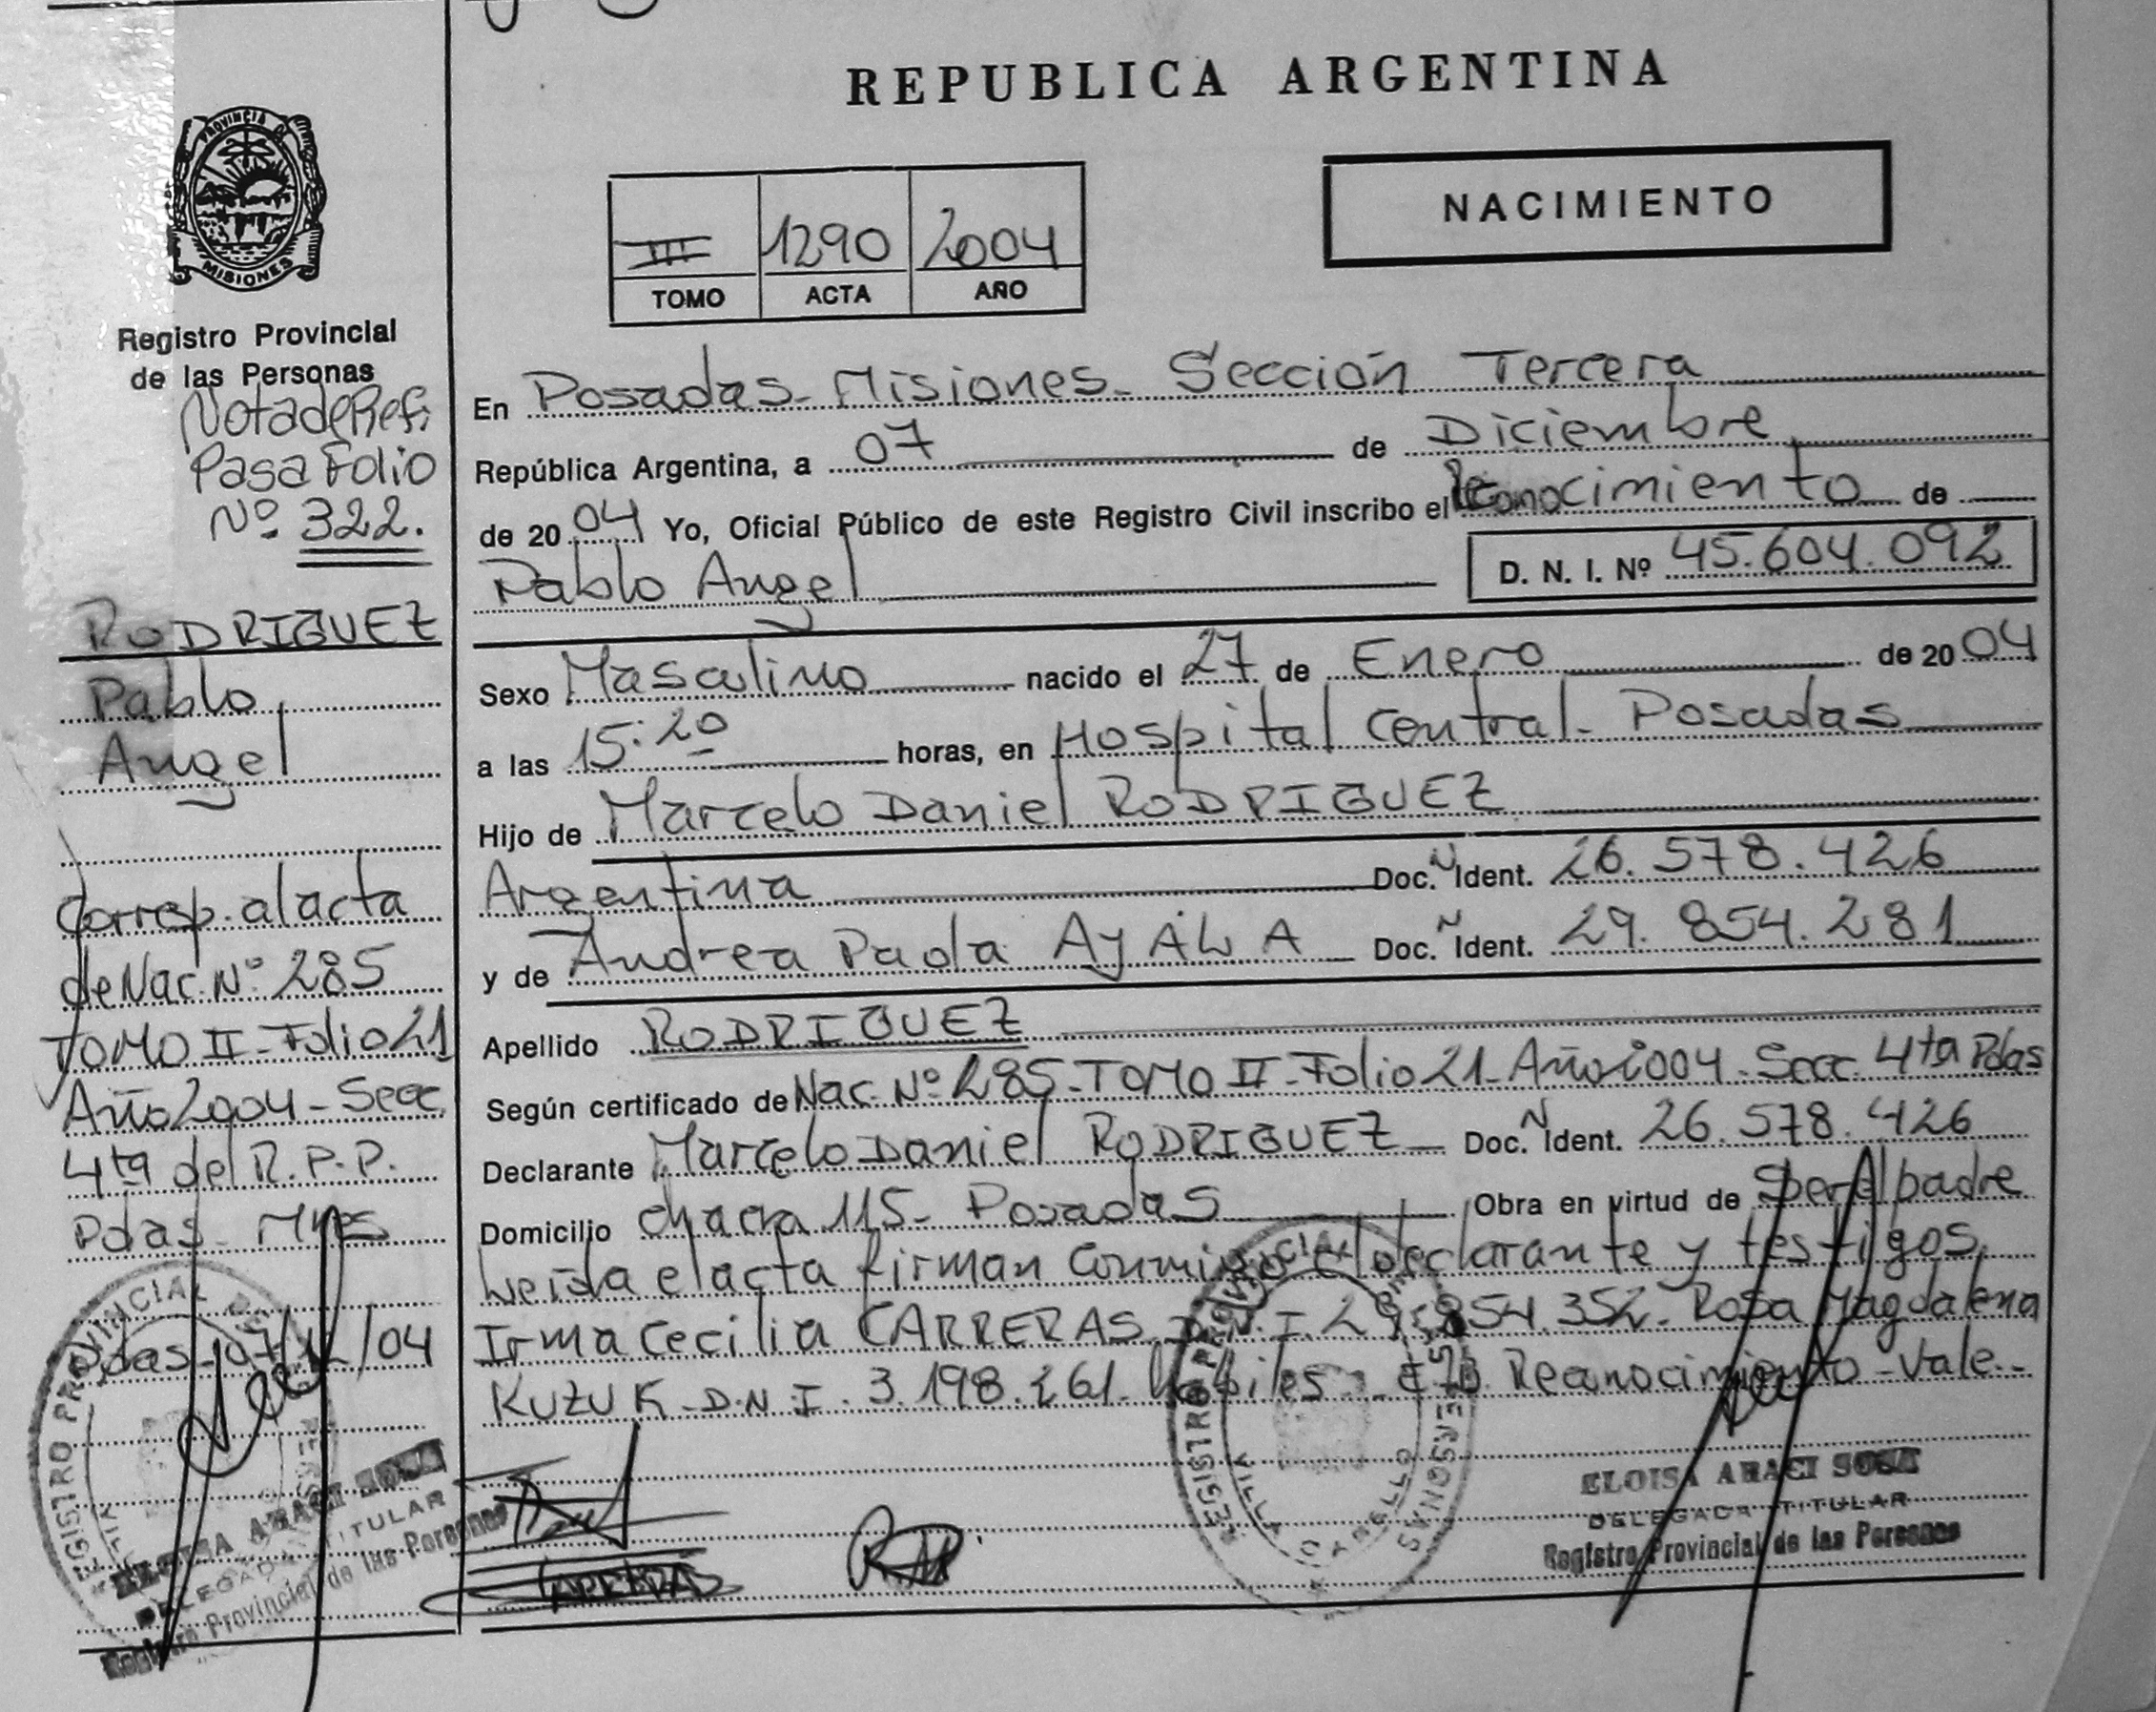 REPUBLICA ARGENTINA
NACIMIENTO
III 1290 2004
TOMO ACTA AÑO
PROVINCIA DE
MISIONES
Registro Provincial
de las Personas
Nota de Ref:
Pasa Folio
Nº 322.
RODRIGUEZ
Pablo
Angel
Corresp. al acta
de Nac. Nº 285
TOMO II - Folio 21
Año 2004 - Secc.
4ta del R.P.P.
Pdas - Mnes
Pdas - 07/12/04
En Posadas - Misiones - Sección Tercera
República Argentina, a 07 de Diciembre
de 2004 Yo, Oficial Público de este Registro Civil inscribo el Reconocimiento de
Pablo Angel D. N. I. Nº 45.604.092
Sexo Masculino nacido el 27 de Enero de 2004
a las 15:20 horas, en Hospital Central - Posadas
Hijo de Marcelo Daniel RODRIGUEZ
Argentina Doc. N Ident. 26.578.426
y de Andrea Paola AYALA Doc. N Ident. 29.854.281
Apellido RODRIGUEZ
Según certificado de Nac. Nº 285 - TOMO II - Folio 21 - Año 2004 - Secc. 4ta Pdas
Declarante Marcelo Daniel RODRIGUEZ Doc. N Ident. 26.578.426
Domicilio chacra 115 - Posadas Obra en virtud de Ser el padre
Leída el acta firman conmigo el declarante y testigos
Irma Cecilia CARRERAS D.N.I. 29.854.352 - Rosa Magdalena
KUZUK - D.N.I. 3.198.261 - hábiles - E/L Reconocimiento - Vale -
CARRERAS
REGISTRO PROVINCIAL DE LAS PERSONAS
VILLA CABELLO
ELOISA ARACI SOSA
DELEGADA TITULAR
Registro Provincial de las Personas
REGISTRO PROVINCIAL DE
ELOISA ARACI SOSA
DELEGADA TITULAR
Registro Provincial de las Personas